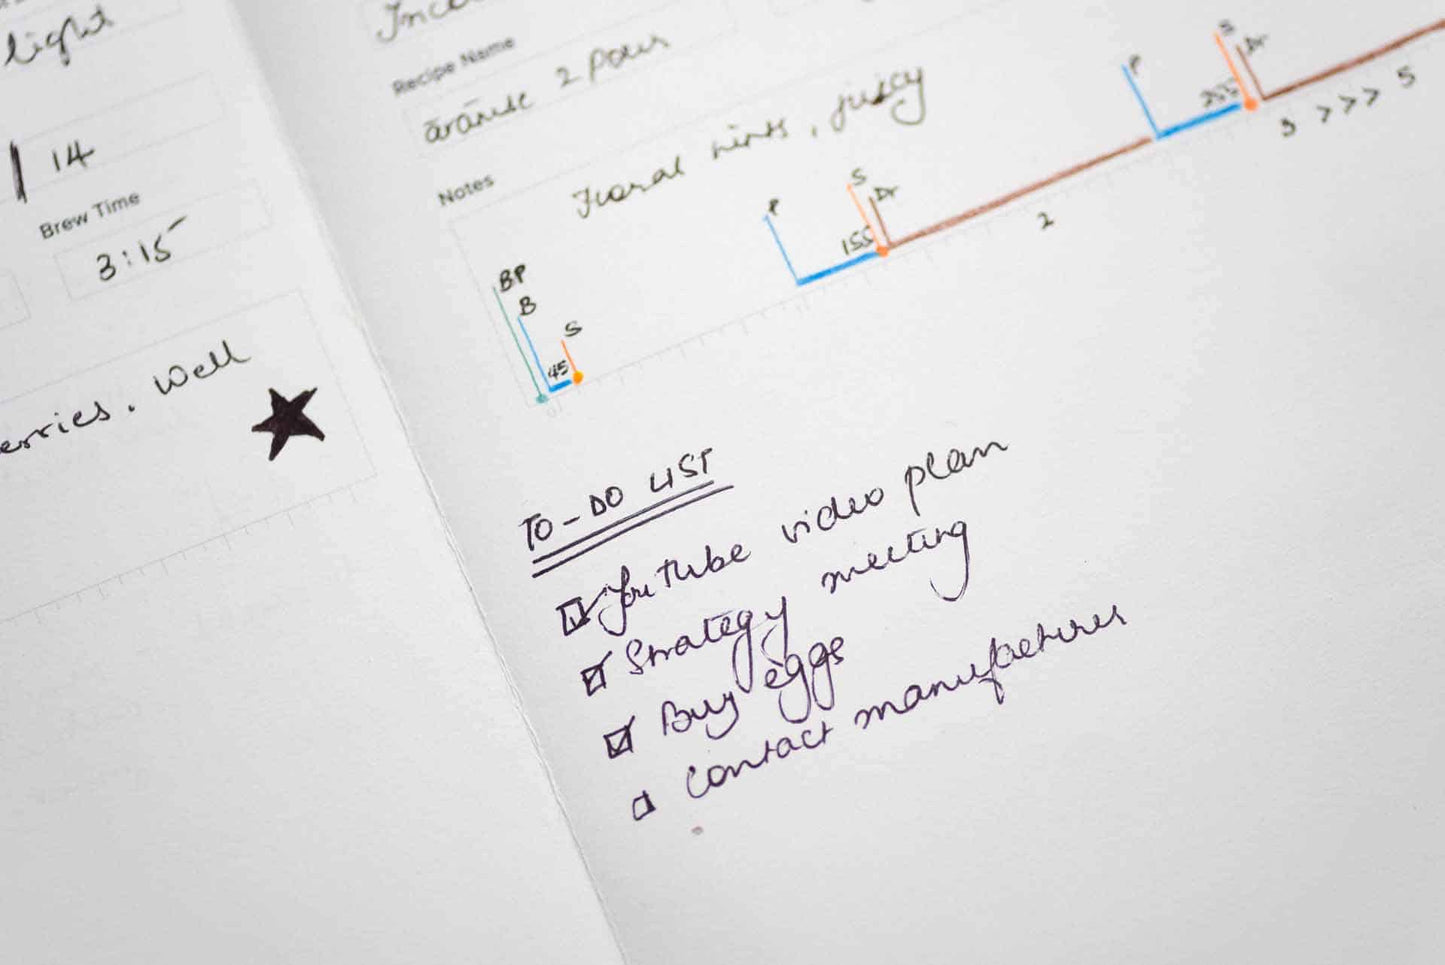 light
14
Brew Time
3:15
erries. Well
Recipe Name
2 Pours
Notes
Floral hints, juicy
BP
B
S
45
P
S
Dr
155
2
P
S
Dr
255
3 >>> 5
TO-DO LIST
Youtube video plan
Strategy meeting
Buy eggs
Contact manufacturer